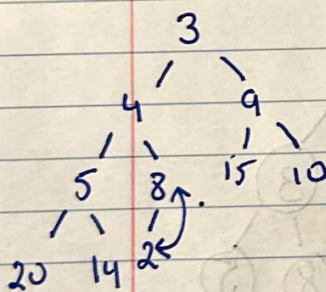 3
4 9
5 8 15 10
20 14 2